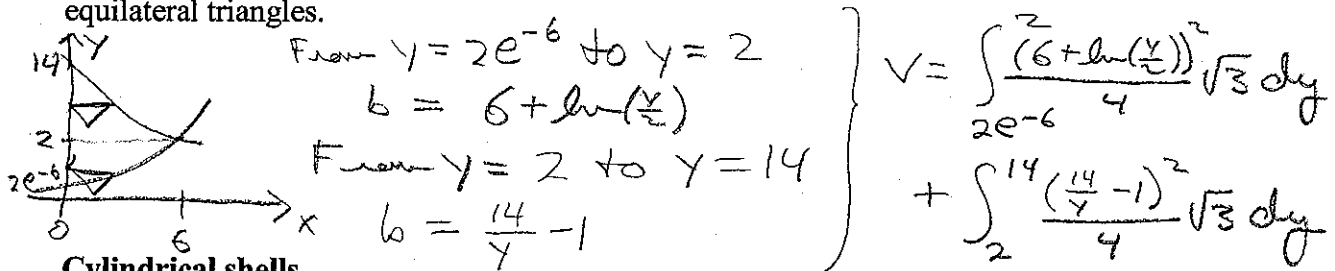 equilateral triangles.
Y
14
2
2e^-6
0
6
X
From y = 2e^-6 to y = 2
b = 6 + ln(y/2)
From y = 2 to y = 14
b = 14/y - 1
V = ∫_{2e^-6}^{2} (6 + ln(y/2))^2/4 √3 dy
+ ∫_2^14 (14/y - 1)^2/4 √3 dy
Cylindrical shells